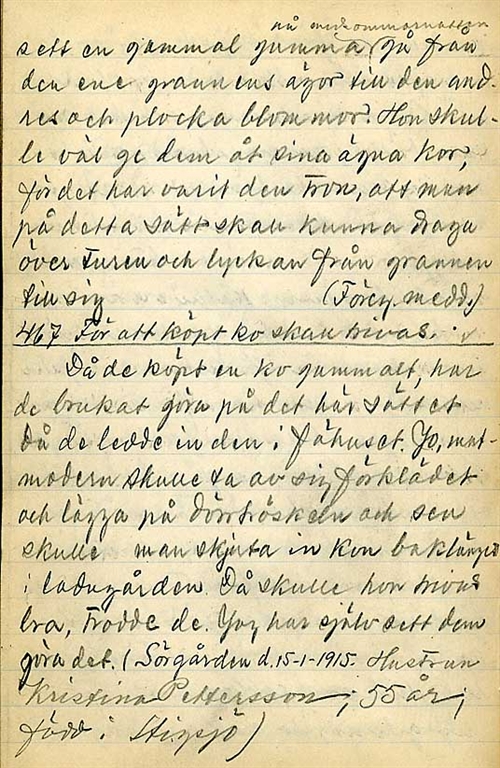 på midsommarnatten
sett en gammal gumma gå från
den ene grannens ägor till den and-
res och plocka blommor. Hon skul-
le väl ge dem åt sina ägna kor,
för det har varit den tron, att man
på detta sätt skall kunna draga
över turen och lyckan från grannen
till sig (Föreg. medd.)
467 För att köpt ko skall trivas.
Då de köpt en ko gammalt, har
de brukat göra på det här sättet
då de ledde in den i fähuset. Jo, mat-
modern skulle ta av sig förklädet
och lägga på dörrtröskeln och sen
skulle man skjuta in kon baklänges
i ladugården. Då skulle hon trivas
bra, trodde de. Jag har själv sett dem
göra det. (Sörgården d. 15-1-1915. Hustrun
Kristina Pettersson, 55 år,
född i Stigsjö)